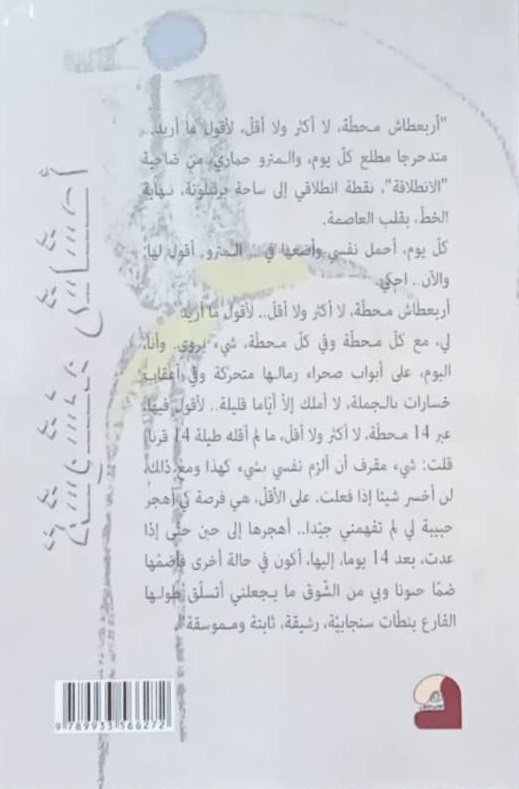 "أربعطاش محطّة، لا أكثر ولا أقلّ، لأقول ما أريد..
متدحرجا مطلع كلّ يوم، والمترو حماري، من ضاحية
"الانطلاقة"، نقطة انطلاقي إلى ساحة برشلونة، نهاية
الخطّ، بقلب العاصمة.
كلّ يوم، أحمل نفسي وأضعها في المترو. أقول لها:
والآن.. احكي
أربعطاش محطّة، لا أكثر ولا أقلّ.. لأقول ما أريد
لي، مع كلّ محطّة وفي كلّ محطّة، شيء يروى. وأنا،
اليوم، على أبواب صحراء رمالها متحركة وفي أعقاب
خسارات بالجملة، لا أملك إلاّ أيّاما قليلة.. لأقول فيها،
عبر 14 محطّة، لا أكثر ولا أقلّ، ما لم أقله طيلة 14 قرنا.
قلت: شيء مقرف أن ألزم نفسي بشيء كهذا ومع ذلك،
لن أخسر شيئا إذا فعلت. على الأقلّ، هي فرصة كي أهجر
حبيبة لي لم تفهمني جيّدا.. أهجرها إلى حين حتّى إذا
عدت، بعد 14 يوما، إليها، أكون في حالة أخرى فأضمّها
ضمّا حنونا وبي من الشّوق ما يجعلني أتسلّق طولها
الفارع بنطّات سنجابيّة، رشيقة، ثابتة ومموسقة"
9 789933 566272